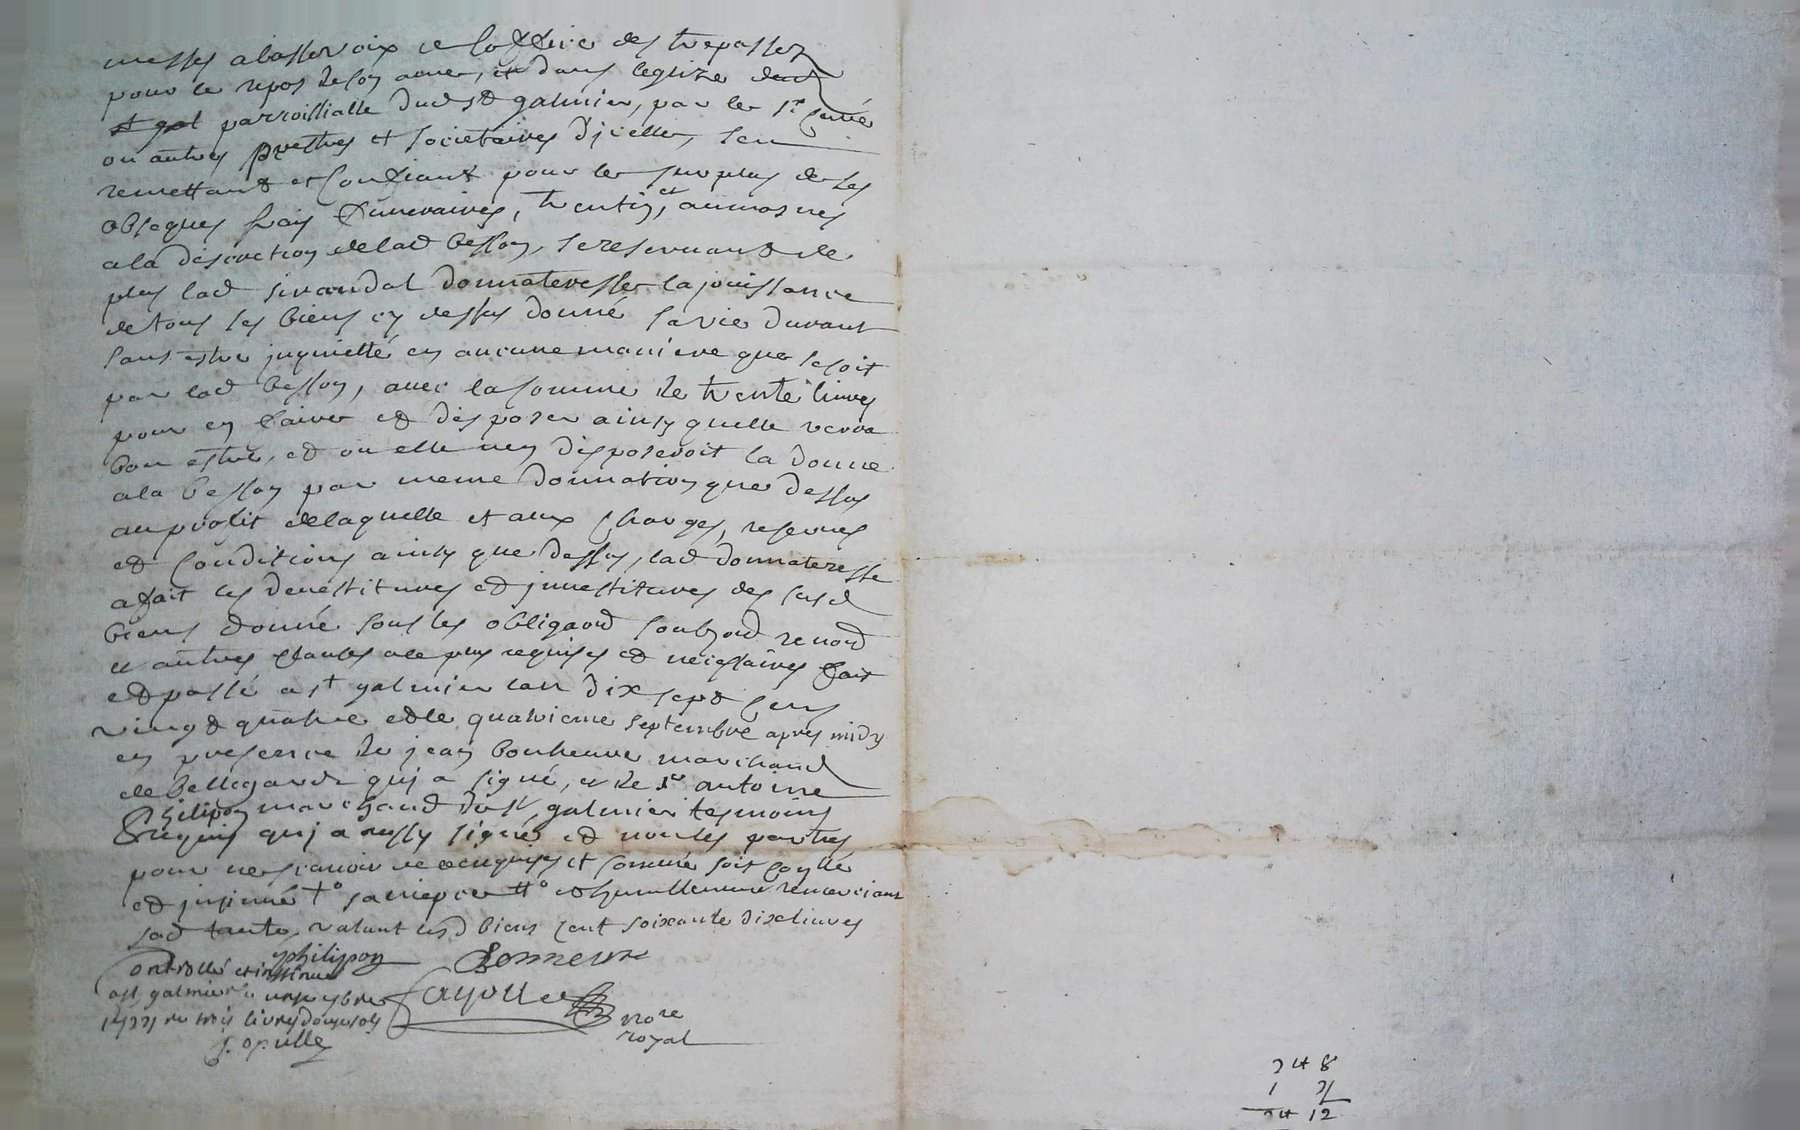 messes a basse voix et loffice des trepassez
pour le repos de son ame, et dans leglize dud
st gal parroissialle dud st galmier, par les sr curé
ou autres prestres et societaires dicelle, sen
remettant et confiant pour le surplus de ses
obseques frais funeraires, trentin, et aumosnes
a la discretion de lad besson, se reservant de
plus lad sirandal donnateresse la jouissance
de tous les biens cy dessus donné sa vie durant
sans estre jnquietté en aucune maniere que se soit
par lad besson, avec la somme de trente livres
pour en faire et disposer ainsy quelle verra
bon estre, et ou elle nen disposeroit la donne
a la besson par meme donnation que dessus
au profit de laquelle et aux charges, reserves
et conditions ainsy que dessus, lad donnateresse
a fait les devestitures et jnvestitures des susd
biens donné sous les obligaond soubzond renond
et autres clauses de plus requises et necessaires fait
et passé a st galmier lan dix sept cens
vingt quatre et le quatrieme septembre apres midy
en presence de jean bonheure marchand
de bellegarde qui a signé, et de sr antoine
philipon marchand dud st galmier tesmoins
requis qui a aussy signé et non les parties
pour ne scavoir de ce enquises et sommé soit controllé
et jnsinué to sa niepce tto et humblement remerciant
sad tante, valant lesd biens cent soixante dix livres
philipon Bonneure
Controllé et insinué
a st galmier
trois livres douze sols
Fayolle nore
royal